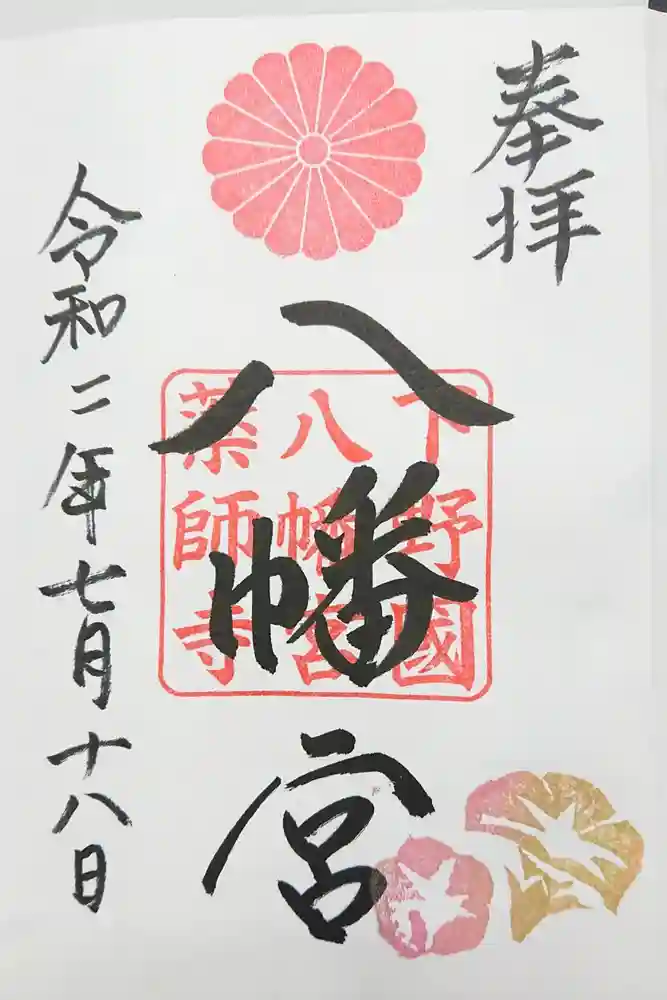 奉拝
下野國
八幡宮
薬師寺
八幡宮
令和二年七月十八日